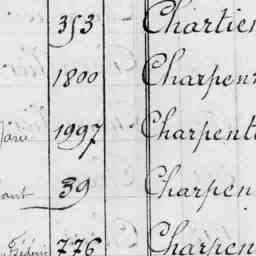 353 Chartier
1800 Charpent
1997 Charpenti
39 Charpen
Frédéric 776 Charpen